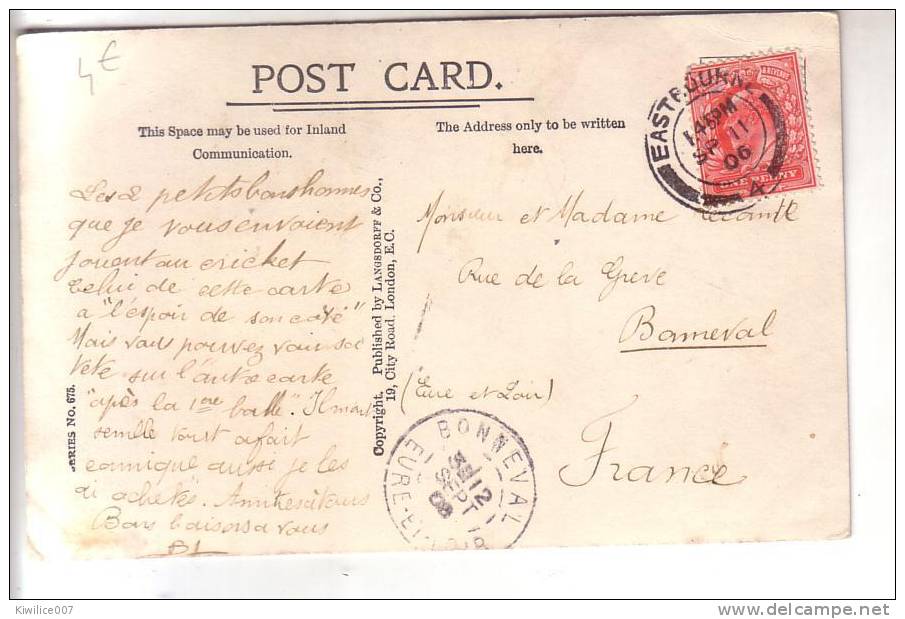 4€
POST CARD.
This Space may be used for Inland
Communication.
The Address only to be written
here.
Les 2 petits bonshommes
que je vous envoient
jouent au cricket
Celui de cette carte
a "l'espoir de son côté"
Mais vous pouvez voir sa
tête sur l'autre carte
"après la 1ere balle". Ils m'ont
semblé tout a fait
comique aussi je les
ai achetés. Amitiés à tous
Bons baisers a vous
BL
SERIES No. 675.
Copyright. Published by LANGSDORFF & Co.,
19, City Road, London, E.C.
Monsieur et Madame
Rue de la Greve
Bonneval
(Eure et Loir)
France
EASTBOURNE
1.45PM
SP 11
06
A
REVENUE
ONE PENNY
BONNEVAL
12
SEPT
EURE-ET-LOIR
Kiwilice007
www.delcampe.net